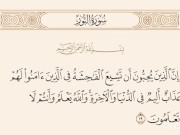 سُورَةُ النُّورِ
بِسْمِ اللَّهِ الرَّحْمَٰنِ الرَّحِيمِ
إِنَّ الَّذِينَ يُحِبُّونَ أَن تَشِيعَ الْفَاحِشَةُ فِي الَّذِينَ ءَامَنُوا لَهُمْ
عَذَابٌ أَلِيمٌ فِي الدُّنْيَا وَالْآخِرَةِ وَاللَّهُ يَعْلَمُ وَأَنتُمْ لَا
تَعْلَمُونَ ١٩